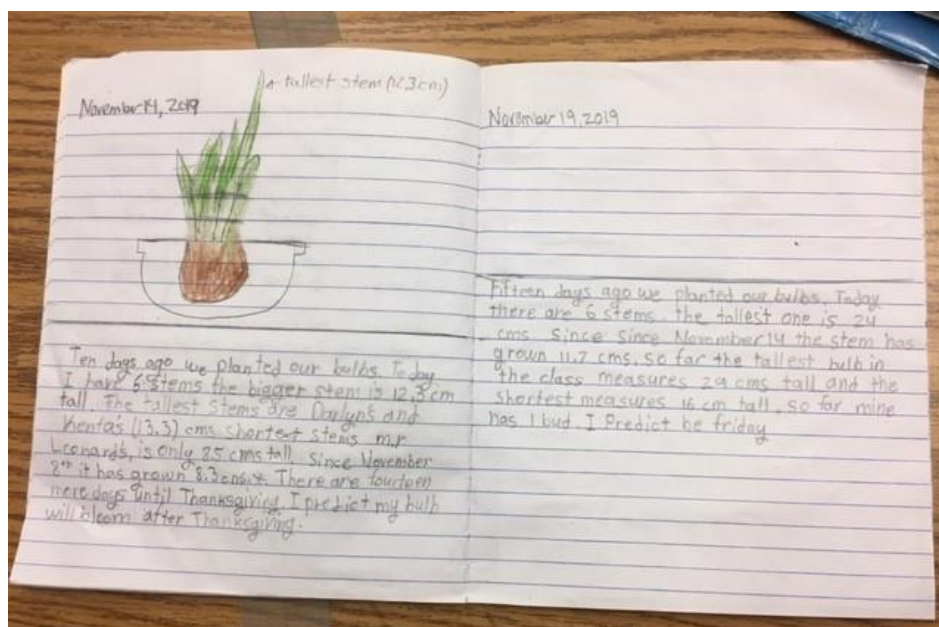 November 14, 2019
tallest stem (12.3cm)
Ten days ago we planted our bulbs. Today
I have 6 stems the bigger stem is 12.3 cm
tall. The tallest stems are Darlyn's and
Kenta's (13.3) cms shortest stems mr
Leonard's, is only 8.5 cms tall. Since November
8th it has grown 8.3 cms. There are fourteen
more days until Thanksgiving. I predict my bulb
will bloom after Thanksgiving.
November 19, 2019
Fifteen days ago we planted our bulbs. Today
there are 6 stems. the tallest one is 24
cms. Since since November 14 the stem has
grown 11.7 cms. so far the tallest bulb in
the class measures 29 cms tall and the
shortest measures 16 cm tall. so far mine
has 1 bud. I Predict be friday